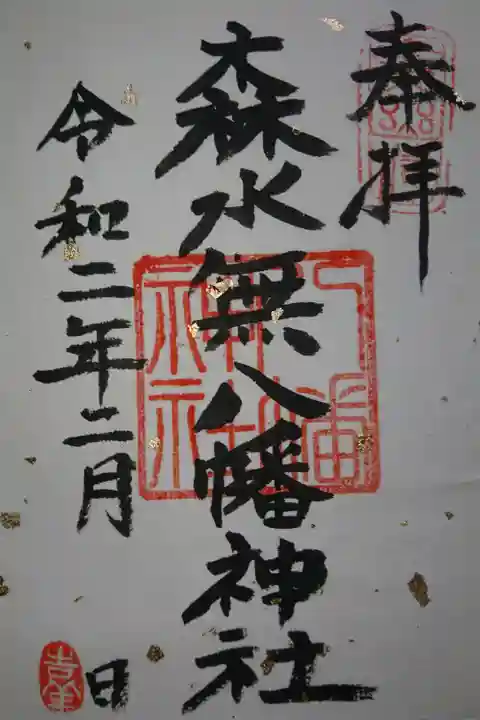 奉拝
森水無八幡神社
令和二年二月 日
八幡神社